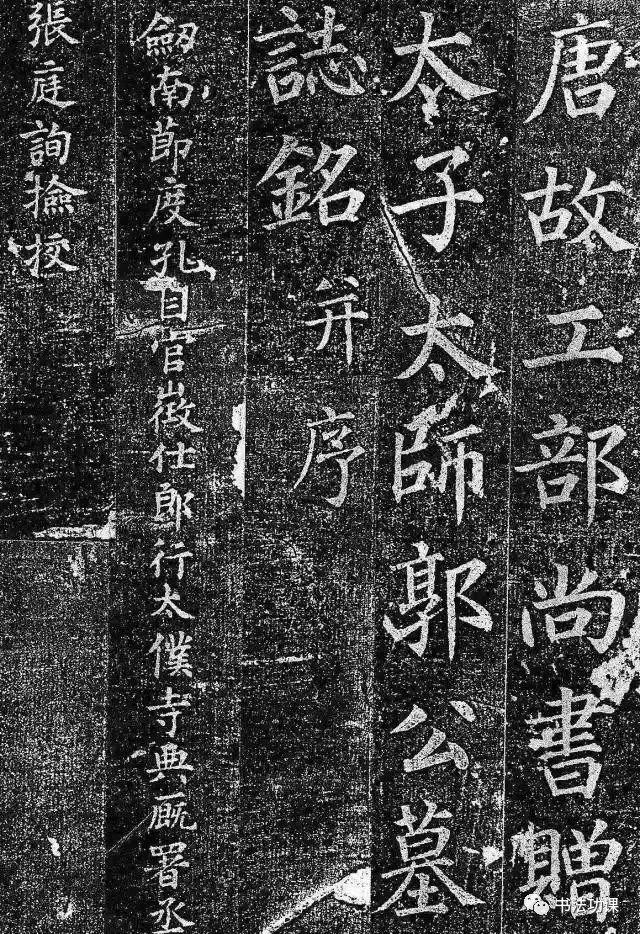 唐故工部尚書贈
太子太師郭公墓
誌銘并序
劔南節度孔目官徵仕郎行太僕寺典廐署丞
張庭詢撿挍
书法功课